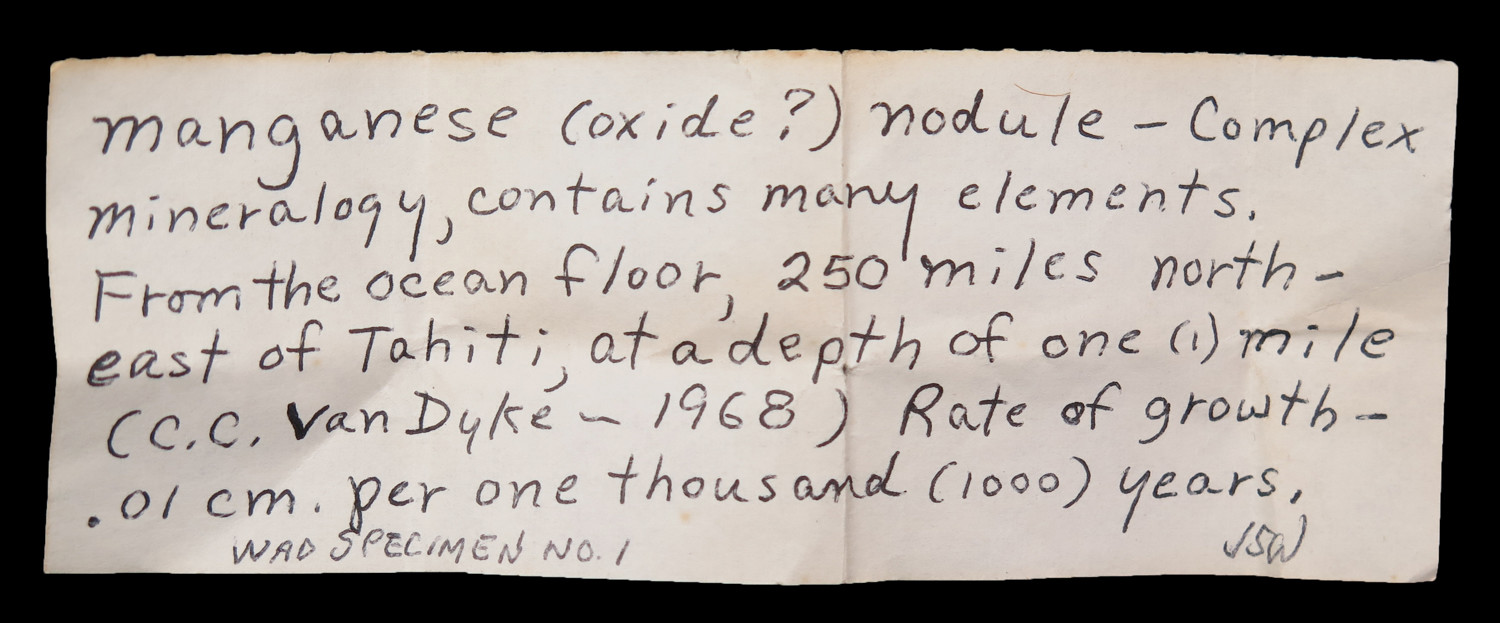 manganese (oxide?) nodule - Complex
mineralogy, contains many elements.
From the ocean floor, 250 miles north-
east of Tahiti, at a depth of one (1) mile
(C.C. Van Dyke - 1968) Rate of growth -
.01 cm. per one thousand (1000) years.
WAD SPECIMEN NO. 1